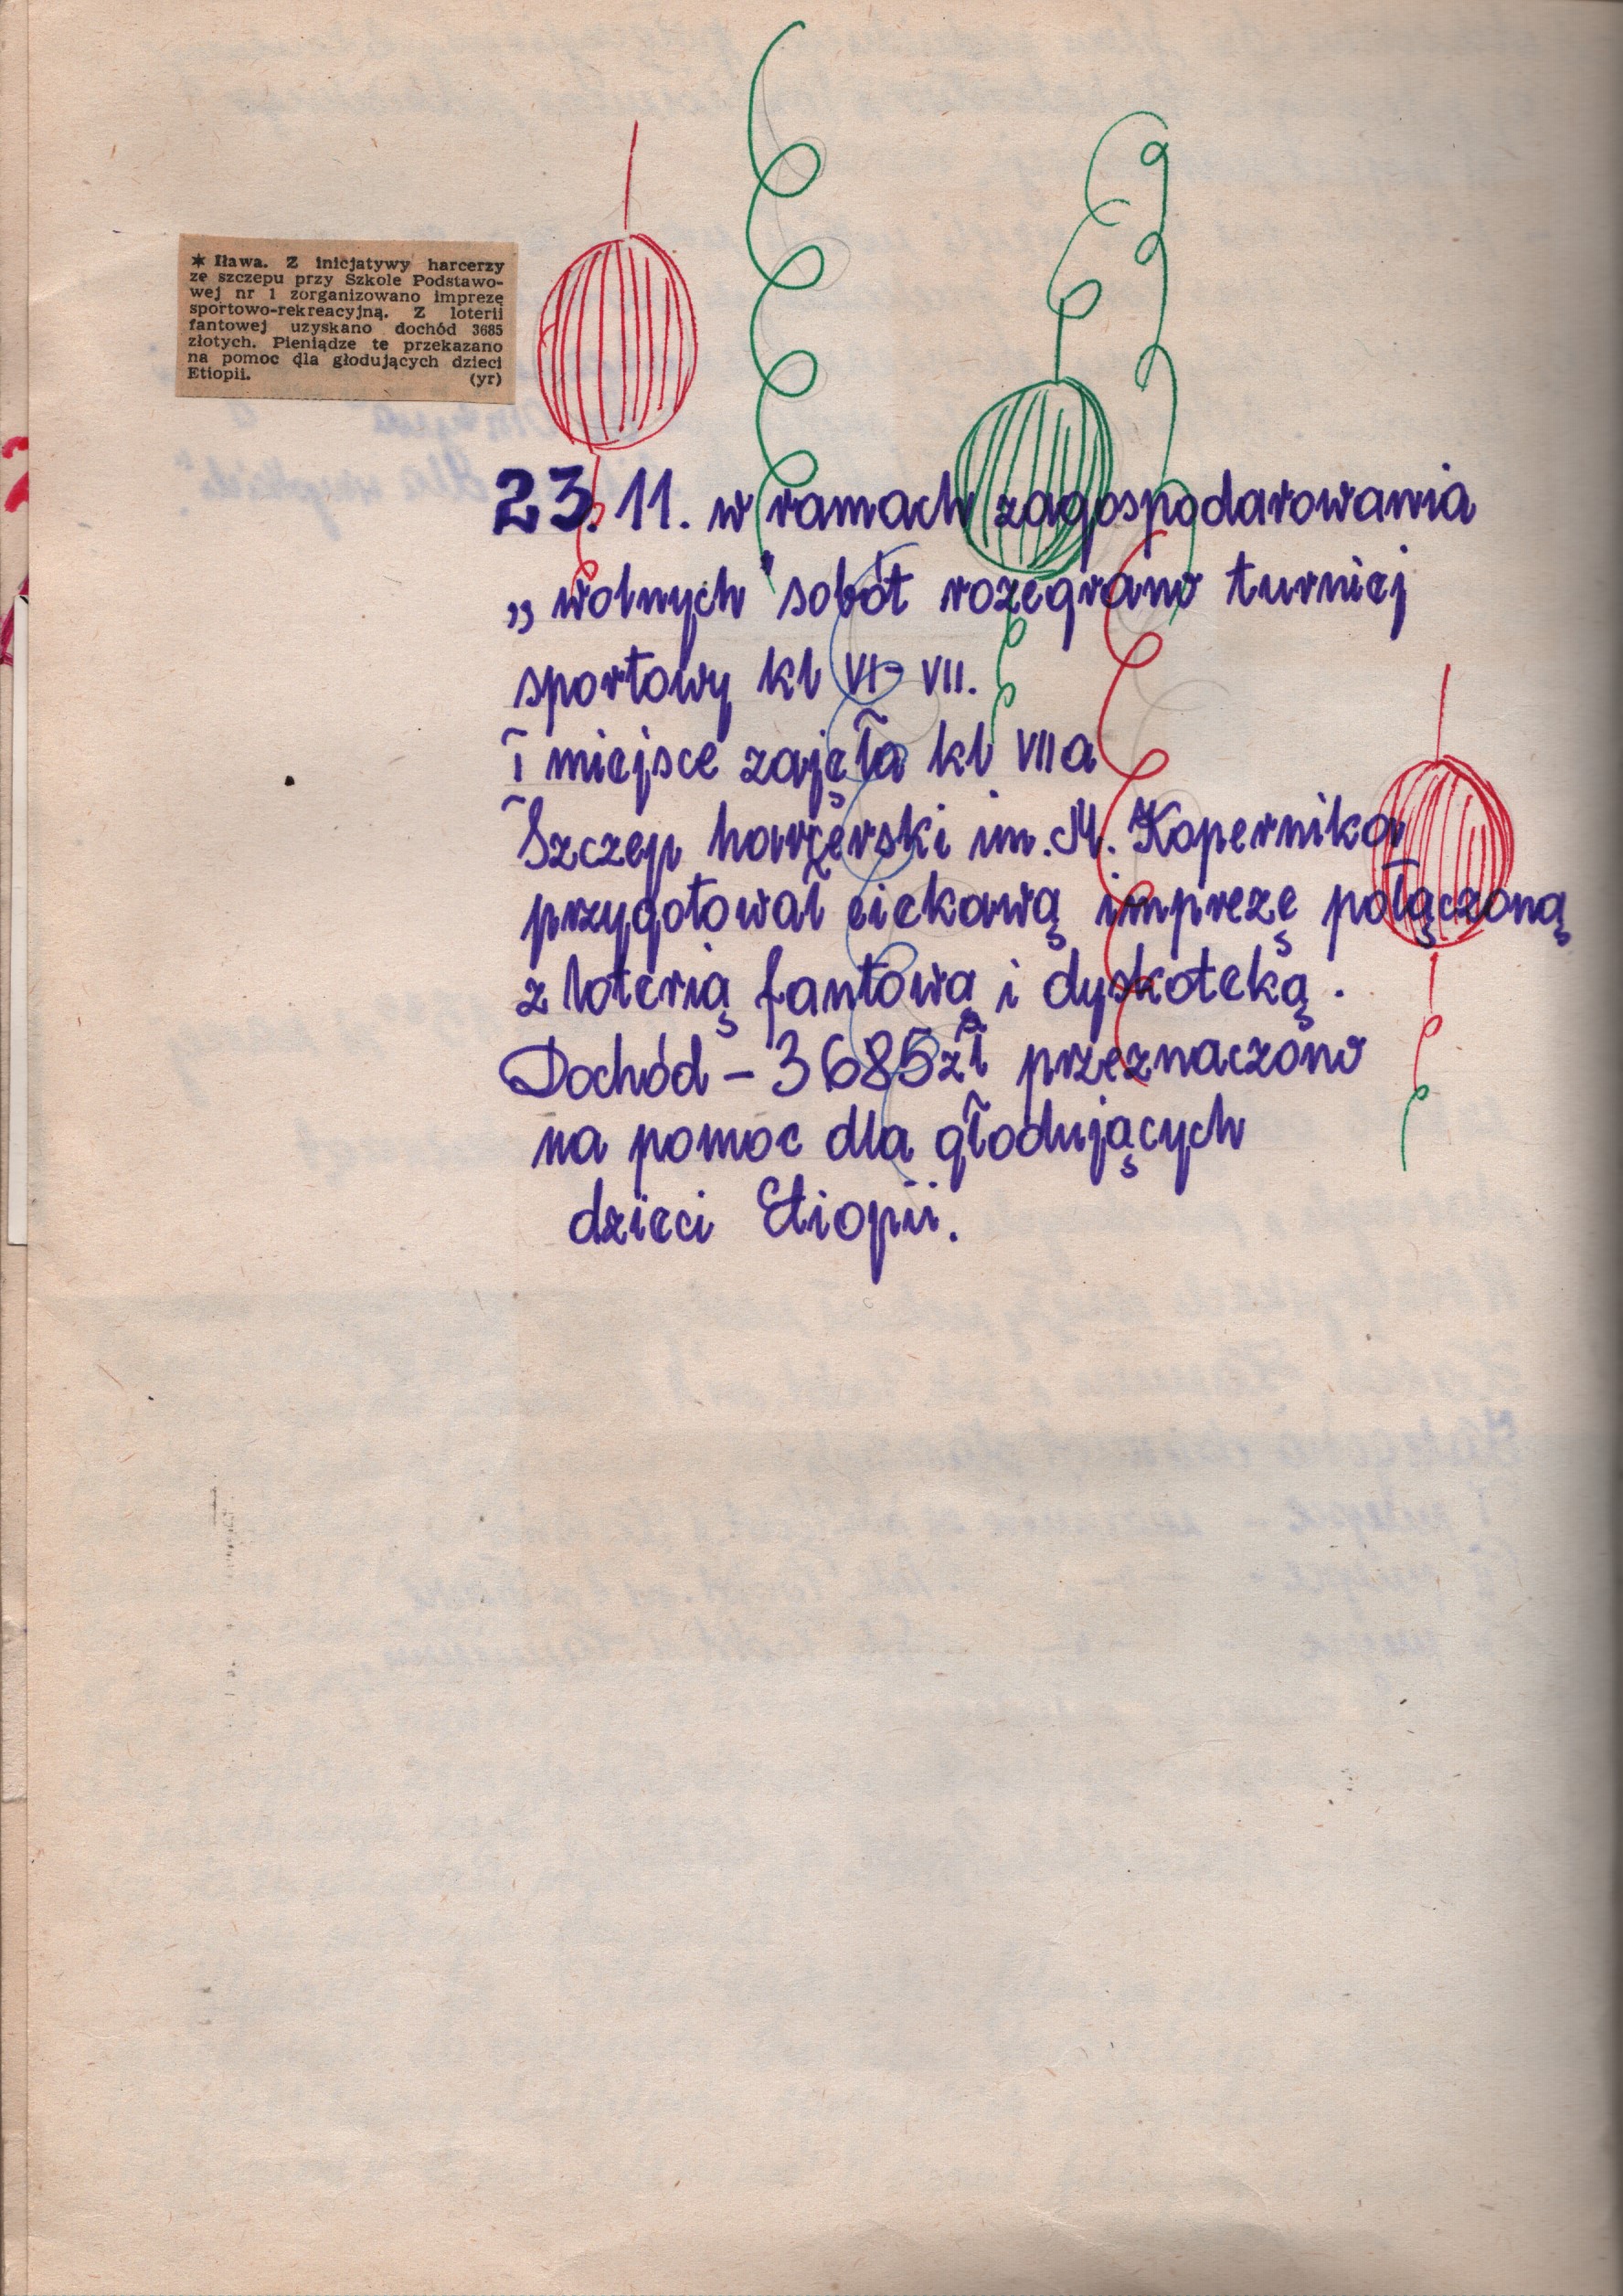 * Iława. Z inicjatywy harcerzy
ze szczepu przy Szkole Podstawo-
wej nr 1 zorganizowano imprezę
sportowo-rekreacyjną. Z loterii
fantowej uzyskano dochód 3685
złotych. Pieniądze te przekazano
na pomoc dla głodujących dzieci
Etiopii. (yr)
23. 11. w ramach zagospodarowania
„wolnych" sobót rozegrano turniej
sportowy kl VI - VII.
I miejsce zajęła kl VII a
Szczep harcerski im. M. Kopernika
przygotował ciekawą imprezę połączoną
z loterią fantową i dyskoteką.
Dochód - 3685 zł przeznaczono
na pomoc dla głodujących
dzieci Etiopii.